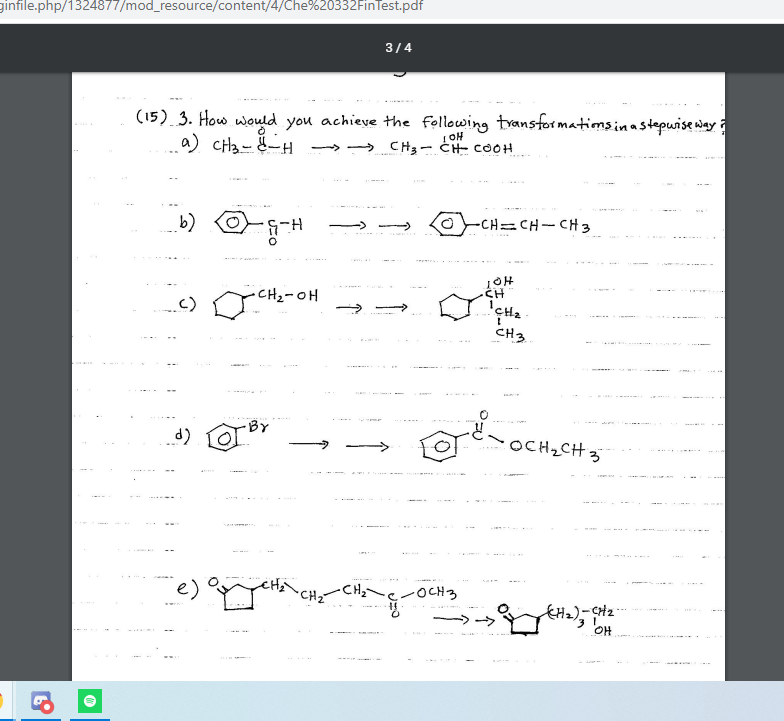 ginfile.php/1324877/mod_resource/content/4/Che%20332FinTest.pdf
3 / 4
(15) 3. How would you achieve the following transformations in a stepwise way?
a) CH3-C-H
O
CH3-CH-COOH
OH
b) C-H
O
CH=CH-CH3
c) CH2-OH
OH
CH
CH2
CH3
d) Br
O
C
OCH2CH3
e) O
CH2
CH2
CH2
C-OCH3
O
O
(CH2)3-CH2
OH